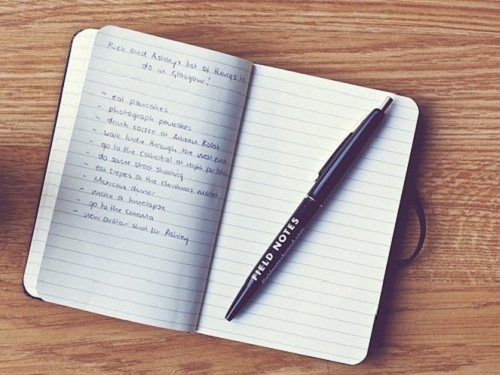 Kick and Ashley's list of things to
do in Glasgow!
- eat pancakes
- photograph pancakes
- drink coffee at Artisan Roast
- walk Indie through the west end
- go to the cathedral at night for
- do some street shooting
- eat crepes at the christmas market
- Mexican dinner
- make a timelapse
- go to the cinema
- new avatar shot for Ashley
FIELD NOTES